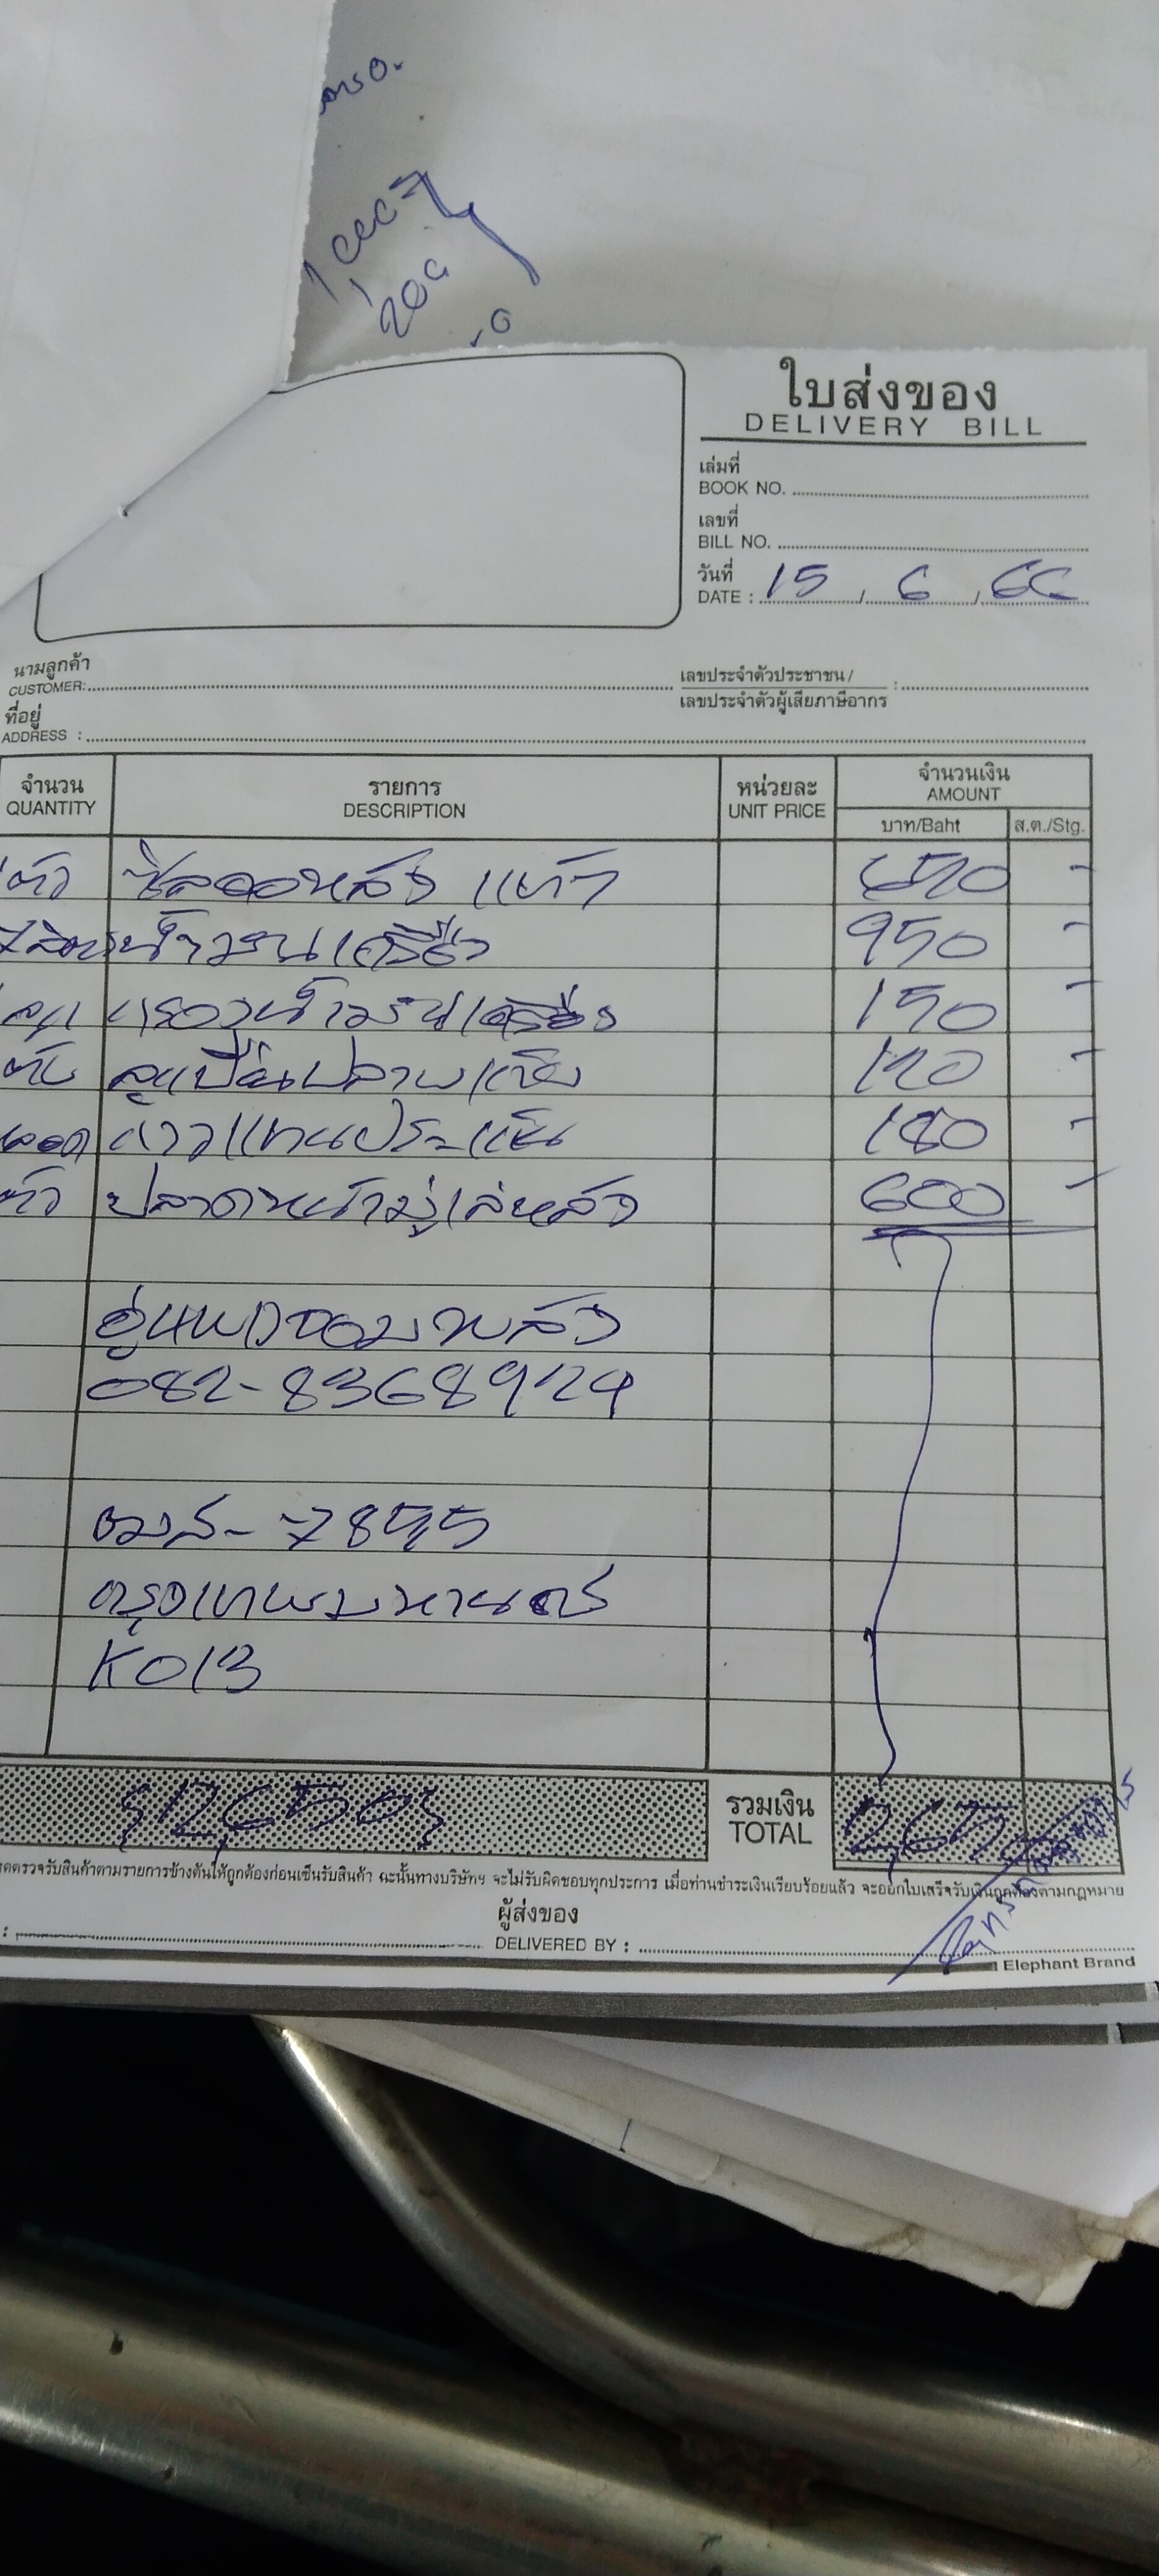 ใบส่งของ
DELIVERY BILL
เล่มที่
BOOK NO.
เลขที่
BILL NO.
วันที่
DATE : 15 / 6 / 66
นามลูกค้า
CUSTOMER:
เลขประจำตัวประชาชน /
เลขประจำตัวผู้เสียภาษีอากร :
ที่อยู่
ADDRESS :
จำนวน รายการ หน่วยละ จำนวนเงิน
QUANTITY DESCRIPTION UNIT PRICE AMOUNT
บาท/Baht ส.ต./Stg.
ตัว ซีลคอหลัง แท้ 650 -
น้ำมันเครื่อง 950 -
ลูก กรองน้ำมันเครื่อง 150 -
120 -
หลอด กาวแทนประเก็น 180 -
ตัว 600 -
อู่
082-8368924
7855
กรุงเทพมหานคร
K013
{12,650}
รวมเงิน
TOTAL
ตรวจรับสินค้าตามรายการข้างต้นให้ถูกต้องก่อนเซ็นรับสินค้า ฉะนั้นทางบริษัทฯ จะไม่รับผิดชอบทุกประการ เมื่อท่านชำระเงินเรียบร้อยแล้ว จะออกใบเสร็จรับเงินถูกต้องตามกฎหมาย
ผู้ส่งของ
DELIVERED BY :
Elephant Brand